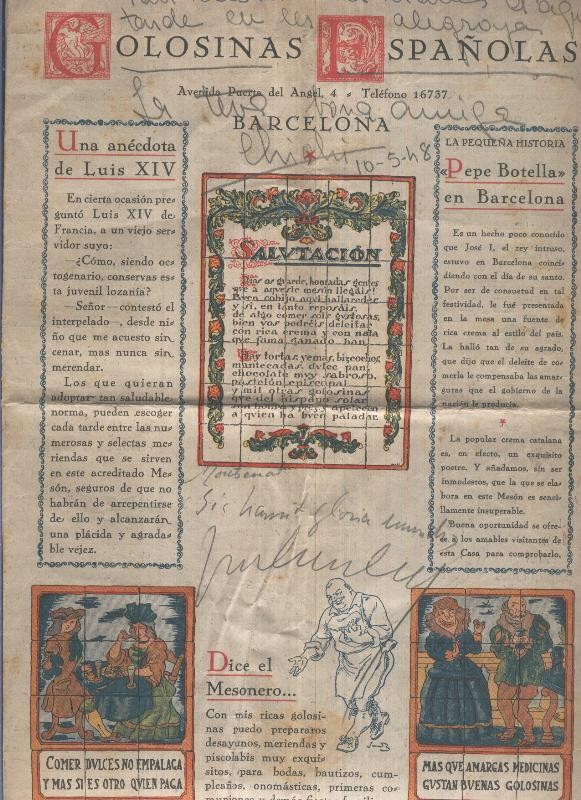 tarde en
GOLOSINAS ESPAÑOLAS
Avenida Puerta del Angel, 4 - Teléfono 16737
BARCELONA
amiga
10-5-48
Una anécdota
de Luis XIV
En cierta ocasión pre-
guntó Luis XIV de
Francia, a un viejo ser-
vidor suyo:
—¿Cómo, siendo oc-
togenario, conservas es-
ta juvenil lozanía?
—Señor— contestó el
interpelado—, desde ni-
ño que me acusto sin
cenar, mas nunca sin
merendar.
Los que quieran
adoptar tan saludable
norma, pueden escoger
cada tarde entre las nu-
merosas y selectas me-
riendas que se sirven
en este acreditado Me-
són, seguros de que no
habrán de arrepentirse
de ello y alcanzarán
una plácida y agrada-
ble vejez.
SALVTACIÓN
Dios os guarde, honradas gentes
que a aqueste mesón llegáis!
Buen cobijo aquí hallaredes
y si, en tanto reposáis,
de algo comer sois gustosas,
bien vos podréis deleitar
con rica crema y con nata
que fama ganado han.
Hay tortas, yemas, bizcochos,
mantecadas, dulce pan,
chocolate muy sabroso,
pastelón episcopal
y mil otras golosinas
que del hispano solar
son honra y prez y apetencia
a quien ha buen paladar.
LA PEQUEÑA HISTORIA
«Pepe Botella»
en Barcelona
Es un hecho poco conocido
que José I, el rey intruso,
estuvo en Barcelona coinci-
diendo con el día de su santo.
Por ser de consuetud en tal
festividad, le fué presentada
en la mesa una fuente de
rica crema al estilo del país.
La halló tan de su agrado,
que dijo que el deleite de co-
merla le compensaba las amar-
guras que el gobierno de la
nación le producía.
La popular crema catalana
es, en efecto, un exquisito
postre. Y añadamos, sin ser
inmodestos, que la que se ela-
bora en este Mesón es senci-
llamente insuperable.
Buena oportunidad se ofre-
a los amables visitantes de
esta Casa para comprobarlo.
Sic transit gloria mundi
COMER DVLCES NO EMPALAGA
Y MAS SI ES OTRO QVIEN PAGA
Dice el
Mesonero...
Con mis ricas golosi-
nas puedo prepararos
desayunos, meriendas y
piscolabis muy exqui-
sitos, para bodas, bautizos, cum-
pleaños, onomásticas, primeras co-
MAS QVE AMARGAS MEDICINAS
GVSTAN BVENAS GOLOSINAS